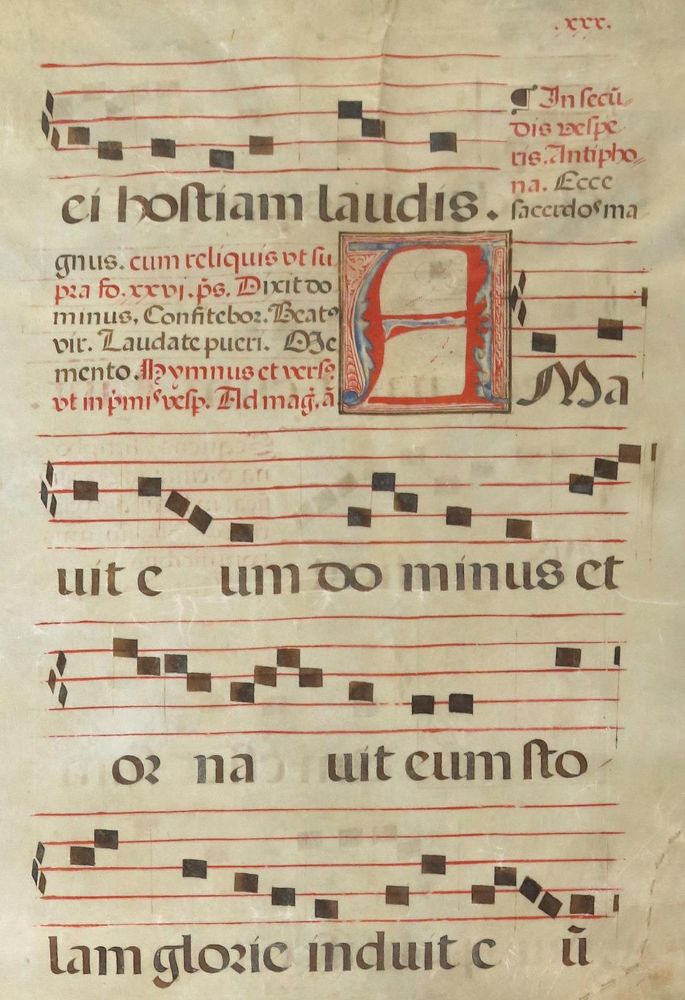 .xxx.
¶ In secũ
dis vespe
ris. Antipho
na. Ecce
ei hostiam laudis.
sacerdoˢ ma
gnus. cum reliquis vt su
pra fo. xxvj. p̄s. Dixit do
minus. Confitebor. Beatꝰ
vir. Laudate pueri. Me
mento. Hymnus et versꝰ
vt in p̄miˢ vesp. Ad mag̃. ã
AMa
uit e um do minus et
or na uit eum sto
lam glorie induit e ũ